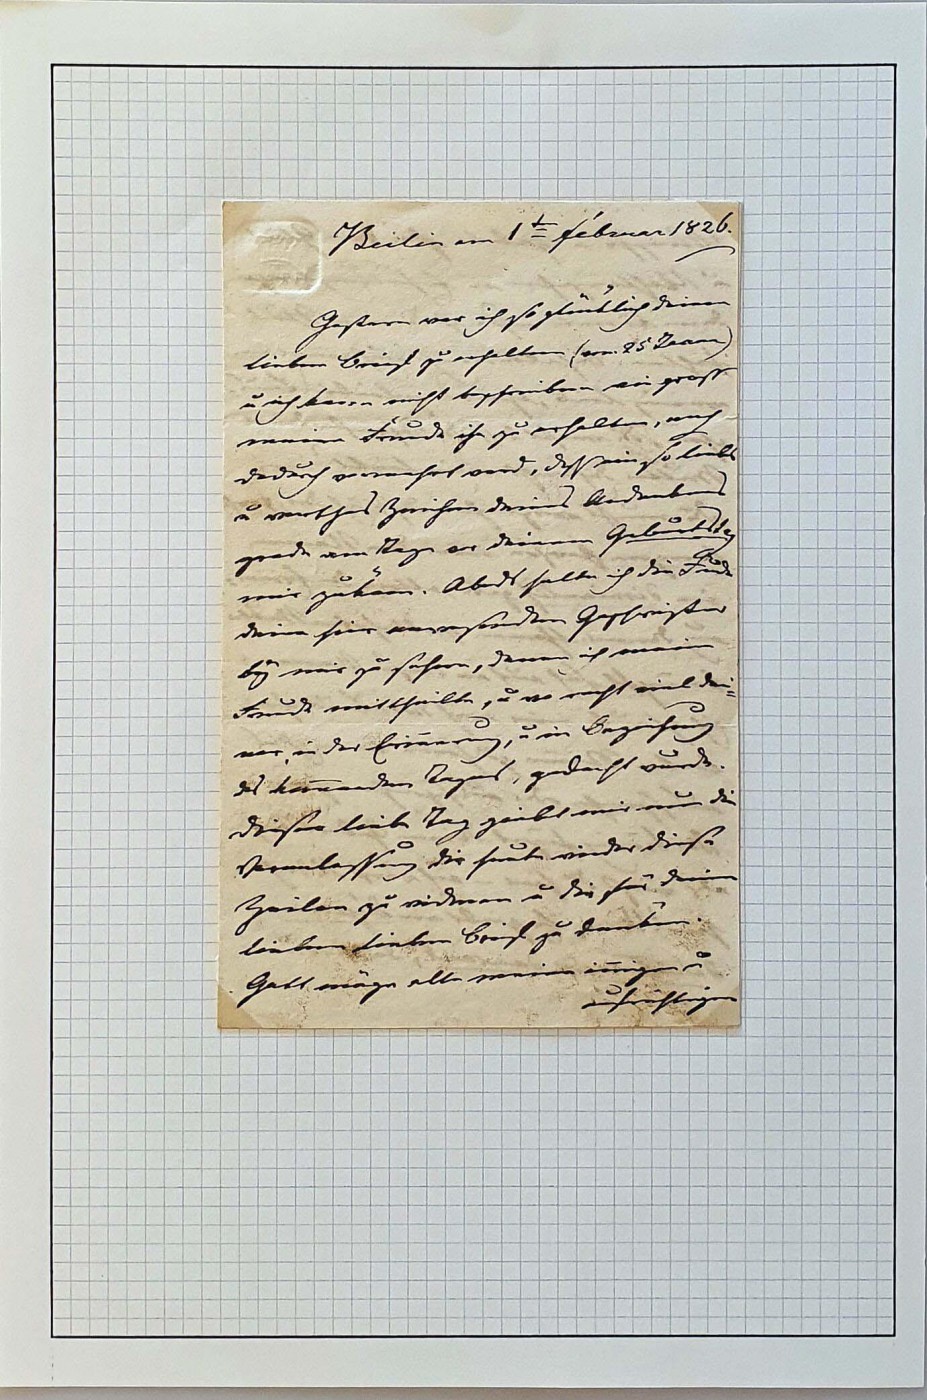 Berlin am 1t Februar 1826.
Gestern war ich so glücklich deinen
lieben Brief zu erhalten (vom 25 Januar)
u ich kann nicht beschreiben wie gross
meine Freude ihn zu erhalten, noch
dadurch vermehrt ward, dass ein so liebes
u werthes Zeichen deines Andenkens
grade am Tage vor deinem Geburtstag
mir zukam. Abends hatte ich die Freude
deine hier anwesenden Geschwister
bey mir zu sehen, denen ich meine
Freude mittheilte, u wo recht viel dei=
ner, in der Erinnerung, u in Beziehung
des kommenden Tages, gedacht wurde.
Dieser liebe Tag giebt mir nun die
Veranlassung dir heute wieder diese
Zeilen zu widmen u dir für deinen
lieben lieben Brief zu danken.
Gott möge alle meine innigen u
aufrichtigen